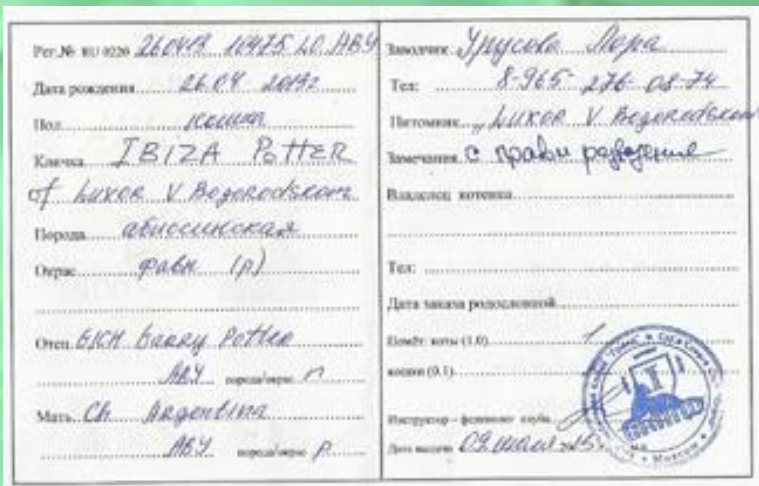 Рег.№ RU 0226 260419 10475 LO ABY
Дата рождения 26.04 2019г
Пол кошка
Кличка IBIZA Potter
of Luxor V Bogorodskom
Порода абиссинская
Окрас фавн (p)
Отец Garry Potter
ABY порода/окрас n
Мать Ch Argentina
ABY порода/окрас p
Заводчик Урусова Лора
Тел: 8-965-276-08-74
Питомник „Luxor V Bogorodskom
Замечания с правом разведения
Владелец котенка
Тел:
Дата заказа родословной
Помёт: коты (1.0) 1
кошки (0.1)
Инструктор – фелинолог клуба
Дата выдачи 09 июля